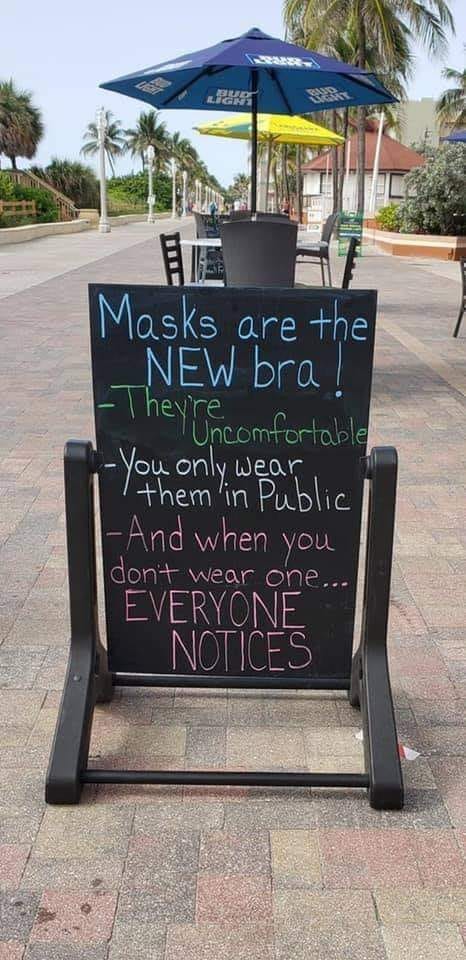 BUD LIGHT
BUD
LIGHT
BUD
LIGHT
Masks are the
NEW bra!
-They're
Uncomfortable
-You only wear
them in Public
-And when you
don't wear one...
EVERYONE
NOTICES